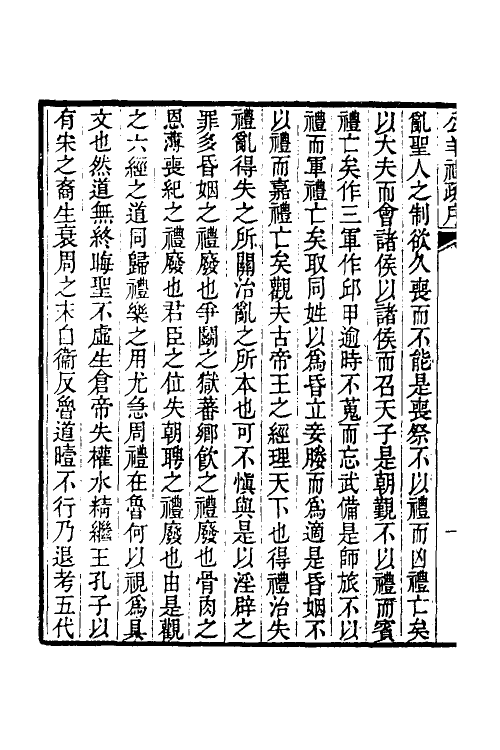 公羊禮疏序
一
亂聖人之制欲久喪而不能是喪祭不以禮而凶禮亡矣
以大夫而會諸侯以諸侯而召天子是朝覲不以禮而賓
禮亡矣作三軍作邱甲逾時不蒐而忘武備是師旅不以
禮而軍禮亡矣取同姓以爲昏立妾媵而爲適是昏姻不
以禮而嘉禮亡矣觀夫古帝王之經理天下也得禮治失
禮亂得失之所關治亂之所本也可不愼與是以淫辟之
罪多昏姻之禮廢也爭鬭之獄蕃鄉飲之禮廢也骨肉之
恩薄喪紀之禮廢也君臣之位失朝聘之禮廢也由是觀
之六經之道同歸禮樂之用尤急周禮在魯何以視爲具
文也然道無終晦聖不虛生倉帝失權水精繼王孔子以
有宋之裔生衰周之末自衞反魯道曀不行乃退考五代